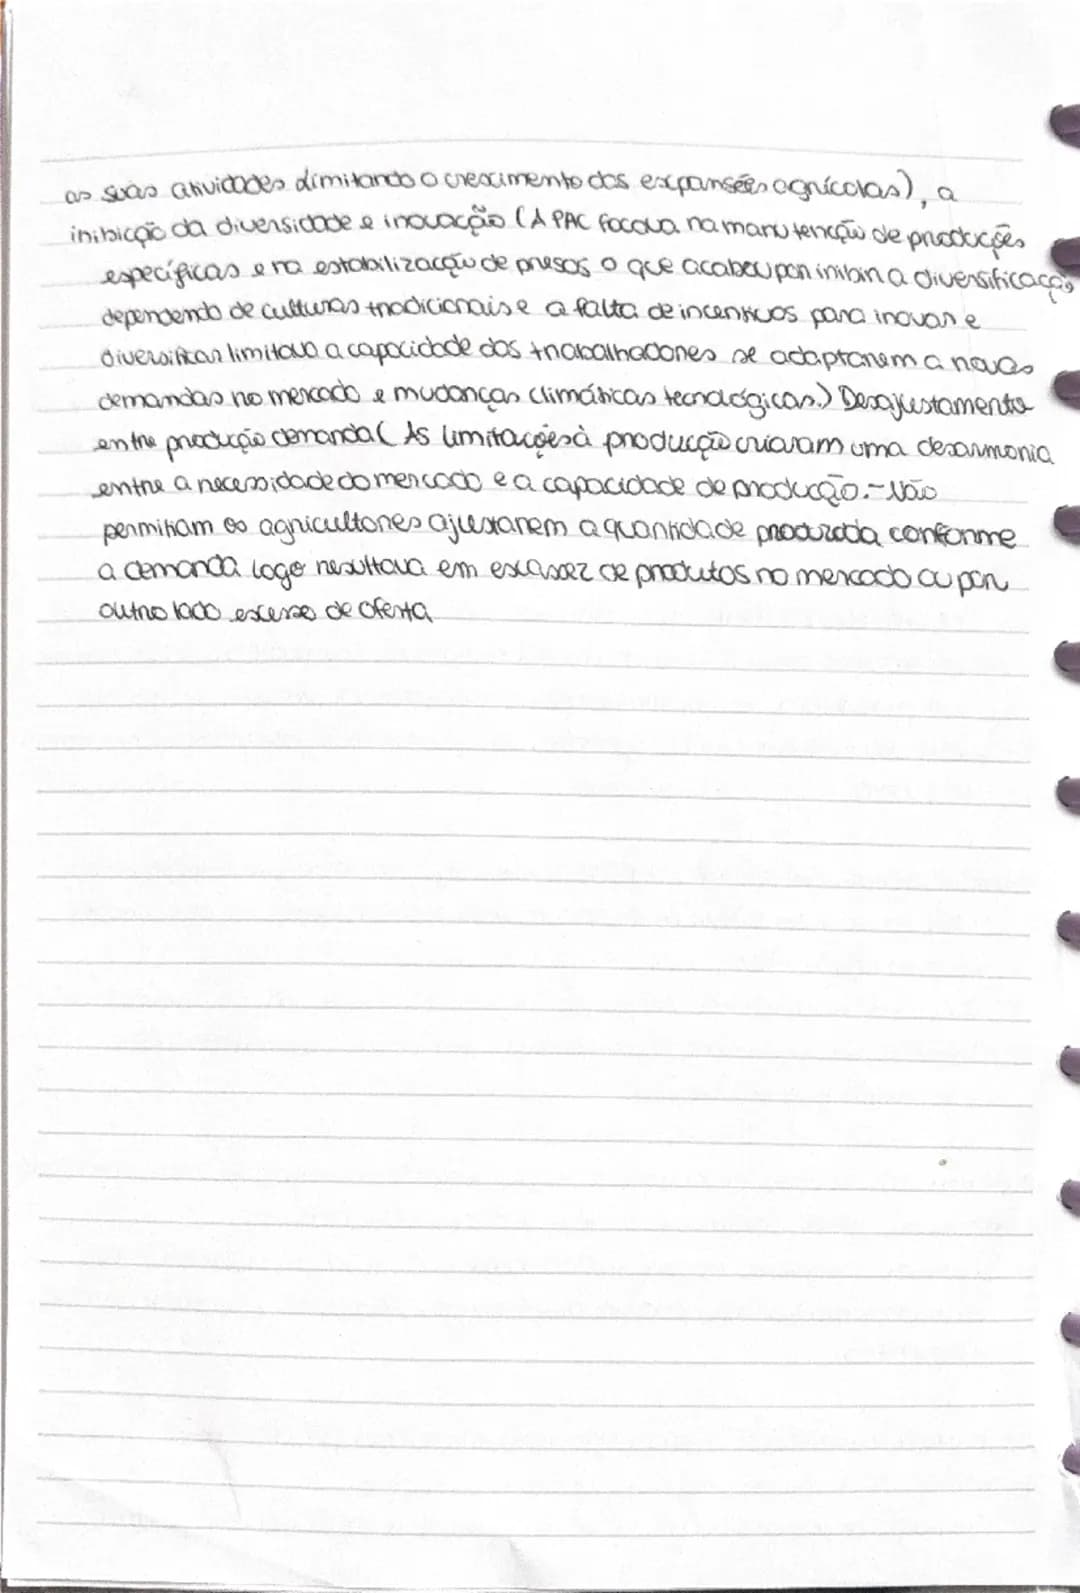 as suas atividades limitando o crescimento das expansões agrícolas), a
inibicção da diversidade e inovação (A PAC focava na manutenção de producções
específicas e na estabilizacção de presos o que acabou por inibir a diversificaçaõ
dependendo de culturas tradicionais e a falta de incentivos para inovar e
diversificar limitava a capacidade dos trabalhadores se adaptarem a novas
demandas no mercado e mudanças climáticas tecnológicas.) Desajustamento
entre producção demanda ( As limitações à producção criavam uma desarmonia
entre a necessidade do mercado e a capacidade de producção. - Não
permitiam os agricultores ajustarem a quantidade produzida conforme
a demanda logo resultava em escassez de produtos no mercado ou por
outro lado excesso de oferta